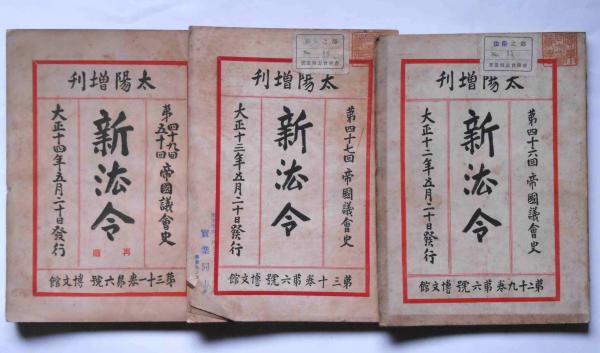 太陽增刊
第四十九回五十回帝國議會史
新法令
再版
大正十四年五月二十日發行
第三十一卷第六號 博文館
太陽增刊
第四十七回帝國議會史
新法令
大正十三年五月二十日發行
實業同
第三十卷第六號 博文館
太陽增刊
第四十六回帝國議會史
新法令
大正十二年五月二十日發行
第二十九卷第六號 博文館